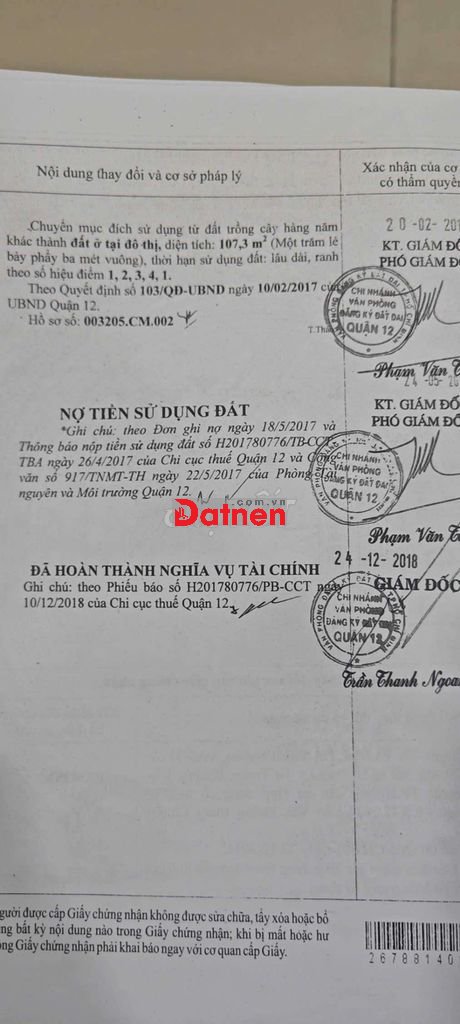 Nội dung thay đổi và cơ sở pháp lý
Xác nhận của cơ
có thẩm quyền
Chuyển mục đích sử dụng từ đất trồng cây hàng năm
khác thành đất ở tại đô thị, diện tích: 107,3 m² (Một trăm lẻ
bảy phẩy ba mét vuông), thời hạn sử dụng đất: lâu dài, ranh
theo số hiệu điểm 1, 2, 3, 4, 1.
Theo Quyết định số 103/QĐ-UBND ngày 10/02/2017 của
UBND Quận 12.
Hồ sơ số: 003205.CM.002
20-02-201
KT. GIÁM ĐỐ
PHÓ GIÁM Đ
CHI NHÁNH
VĂN PHÒNG
ĐĂNG KÝ ĐẤT ĐAI
QUẬN 12
Phạm Văn T
NỢ TIỀN SỬ DỤNG ĐẤT
*Ghi chú: theo Đơn ghi nợ ngày 18/5/2017 và
Thông báo nộp tiền sử dụng đất số H201780776/TB-CCT-
TBA ngày 26/4/2017 của Chi cục thuế Quận 12 và Công
văn số 917/TNMT-TH ngày 22/5/2017 của Phòng
nguyên và Môi trường Quận 12.
24-05-201
KT. GIÁM ĐỐ
PHÓ GIÁM Đ
CHI NHÁNH
VĂN PHÒNG
ĐĂNG KÝ ĐẤT ĐAI
QUẬN 12
Phạm Văn T
.com.vn
Datnen
ĐÃ HOÀN THÀNH NGHĨA VỤ TÀI CHÍNH
Ghi chú: theo Phiếu báo số H201780776/PB-CCT
10/12/2018 của Chi cục thuế Quận 12.
24-12-2018
GIÁM ĐỐC
CHI NHÁNH
VĂN PHÒNG
ĐĂNG KÝ ĐẤT ĐAI
QUẬN 12
Trần Thanh Ngoa
gười được cấp Giấy chứng nhận không được sửa chữa, tẩy xóa hoặc bổ
ng bất kỳ nội dung nào trong Giấy chứng nhận; khi bị mất hoặc hư
ong Giấy chứng nhận phải khai báo ngay với cơ quan cấp Giấy.
26788140